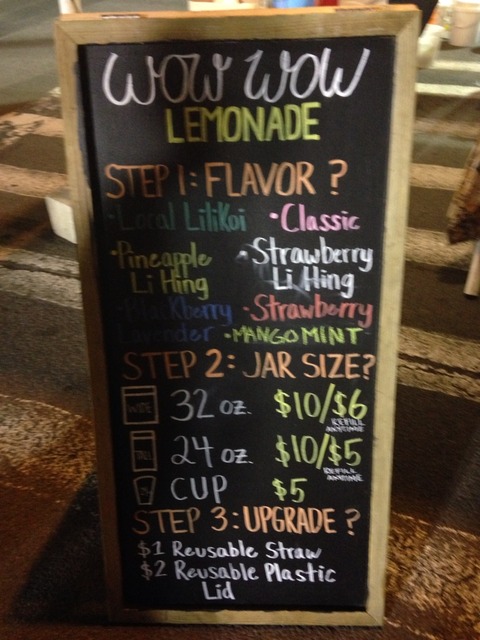 WOW WOW
LEMONADE
STEP 1: FLAVOR ?
• Local Lilikoi • Classic
• Pineapple Li Hing
• Strawberry Li Hing
• Blackberry Lavender
• Strawberry
• MANGO MINT
STEP 2: JAR SIZE?
WIDE 32 oz. $10/$6
REFILL ANYTIME
TALL 24 oz. $10/$5
REFILL ANYTIME
CUP $5
STEP 3: UPGRADE ?
$1 Reusable Straw
$2 Reusable Plastic
Lid